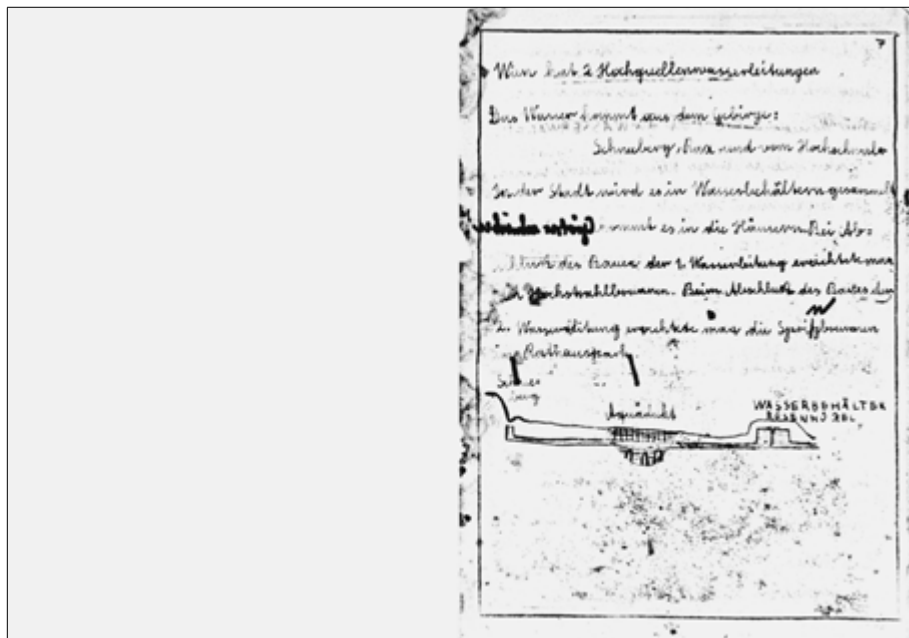 7
Wien hat 2 Hochquellenwasserleitungen
Das Wasser kommt aus dem Gebirge:
Schneeberg, Rax und vom Hochschwab
In der Stadt wird es in Wasserbehältern gesammelt
kommt es in die Häusern. Bei Ab=
schluß des Baues der 1. Wasserleitung errichtete man
Hochstrahlbrunnen. Beim Abschluß des Baues der
2. Wasserleitung errichtete man die Spritzbrunnen
Rathauspark
Aquädukt
WASSERBEHÄLTER
ROSENHÜGEL